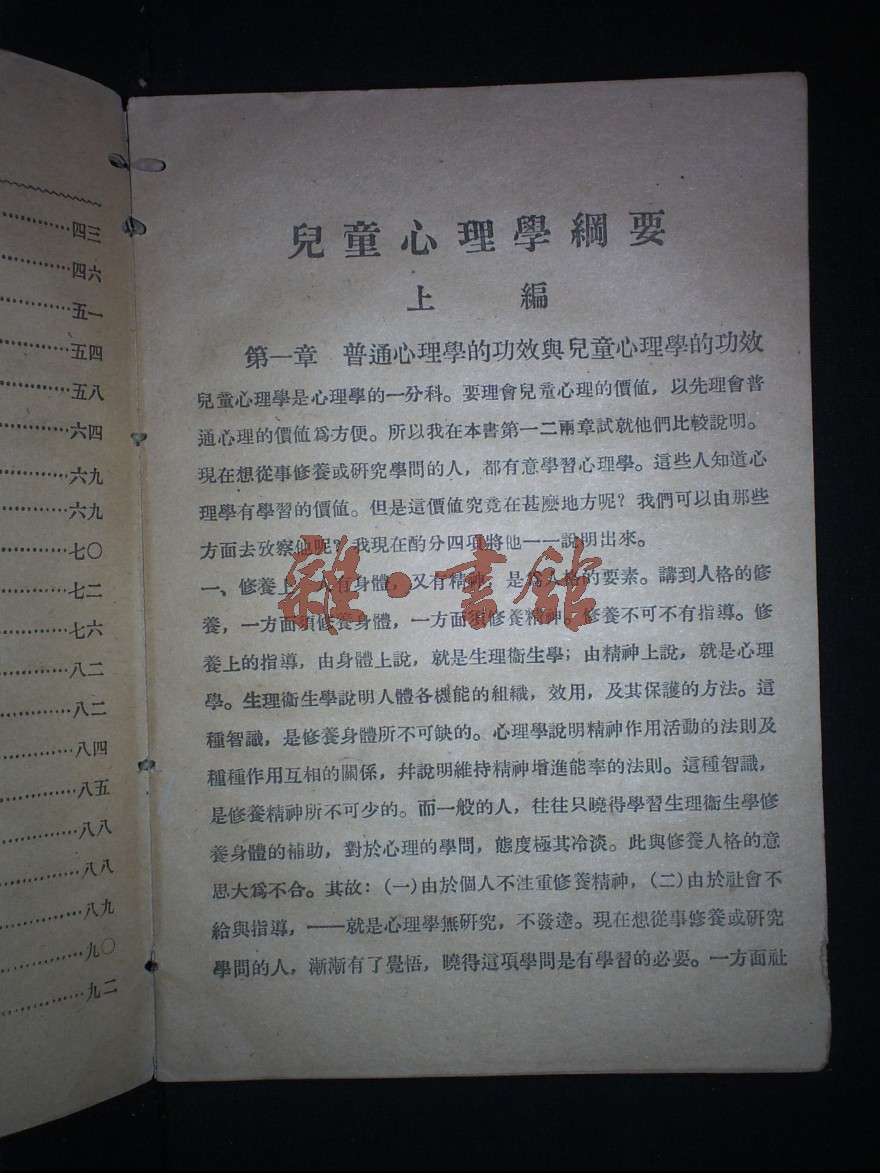 四三
四六
五一
五四
五八
六四
六九
六九
七〇
七二
七六
八二
八二
八四
八五
八八
八八
八九
九〇
九二
兒童心理學綱要
上編
第一章 普通心理學的功效與兒童心理學的功效
兒童心理學是心理學的一分科。要理會兒童心理的價値，以先理會普
通心理的價値爲方便。所以我在本書第一二兩章試就他們比較說明。
現在想從事修養或硏究學問的人，都有意學習心理學。這些人知道心
理學有學習的價值。但是這價値究竟在甚麼地方呢？我們可以由那些
方面去攷察他呢？我現在酌分四項將他一一說明出來。
一、修養上 人有身體，又有精神；是爲人格的要素。講到人格的修
養，一方面須修養身體，一方面須修養精神。修養不可不有指導。修
養上的指導，由身體上說，就是生理衞生學；由精神上說，就是心理
學。生理衞生學說明人體各機能的組織，效用，及其保護的方法。這
種智識，是修養身體所不可缺的。心理學說明精神作用活動的法則及
種種作用互相的關係，幷說明維持精神增進能率的法則。這種智識，
是修養精神所不可少的。而一般的人，往往只曉得學習生理衞生學修
養身體的補助，對於心理的學問，態度極其冷淡。此與修養人格的意
思大爲不合。其故：(一)由於個人不注重修養精神，(二)由於社會不
給與指導，——就是心理學無硏究，不發達。現在想從事修養或硏究
學問的人，漸漸有了覺悟，曉得這項學問是有學習的必要。一方面社
雜·書館